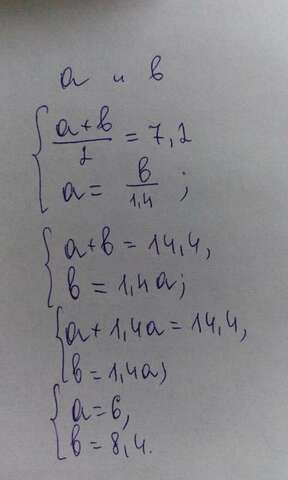 a и b
{ (a+b)/2 = 7,2
a = b/1,4 ;
{ a+b = 14,4,
b = 1,4a;
{ a + 1,4a = 14,4,
b = 1,4a;
{ a = 6,
b = 8,4.